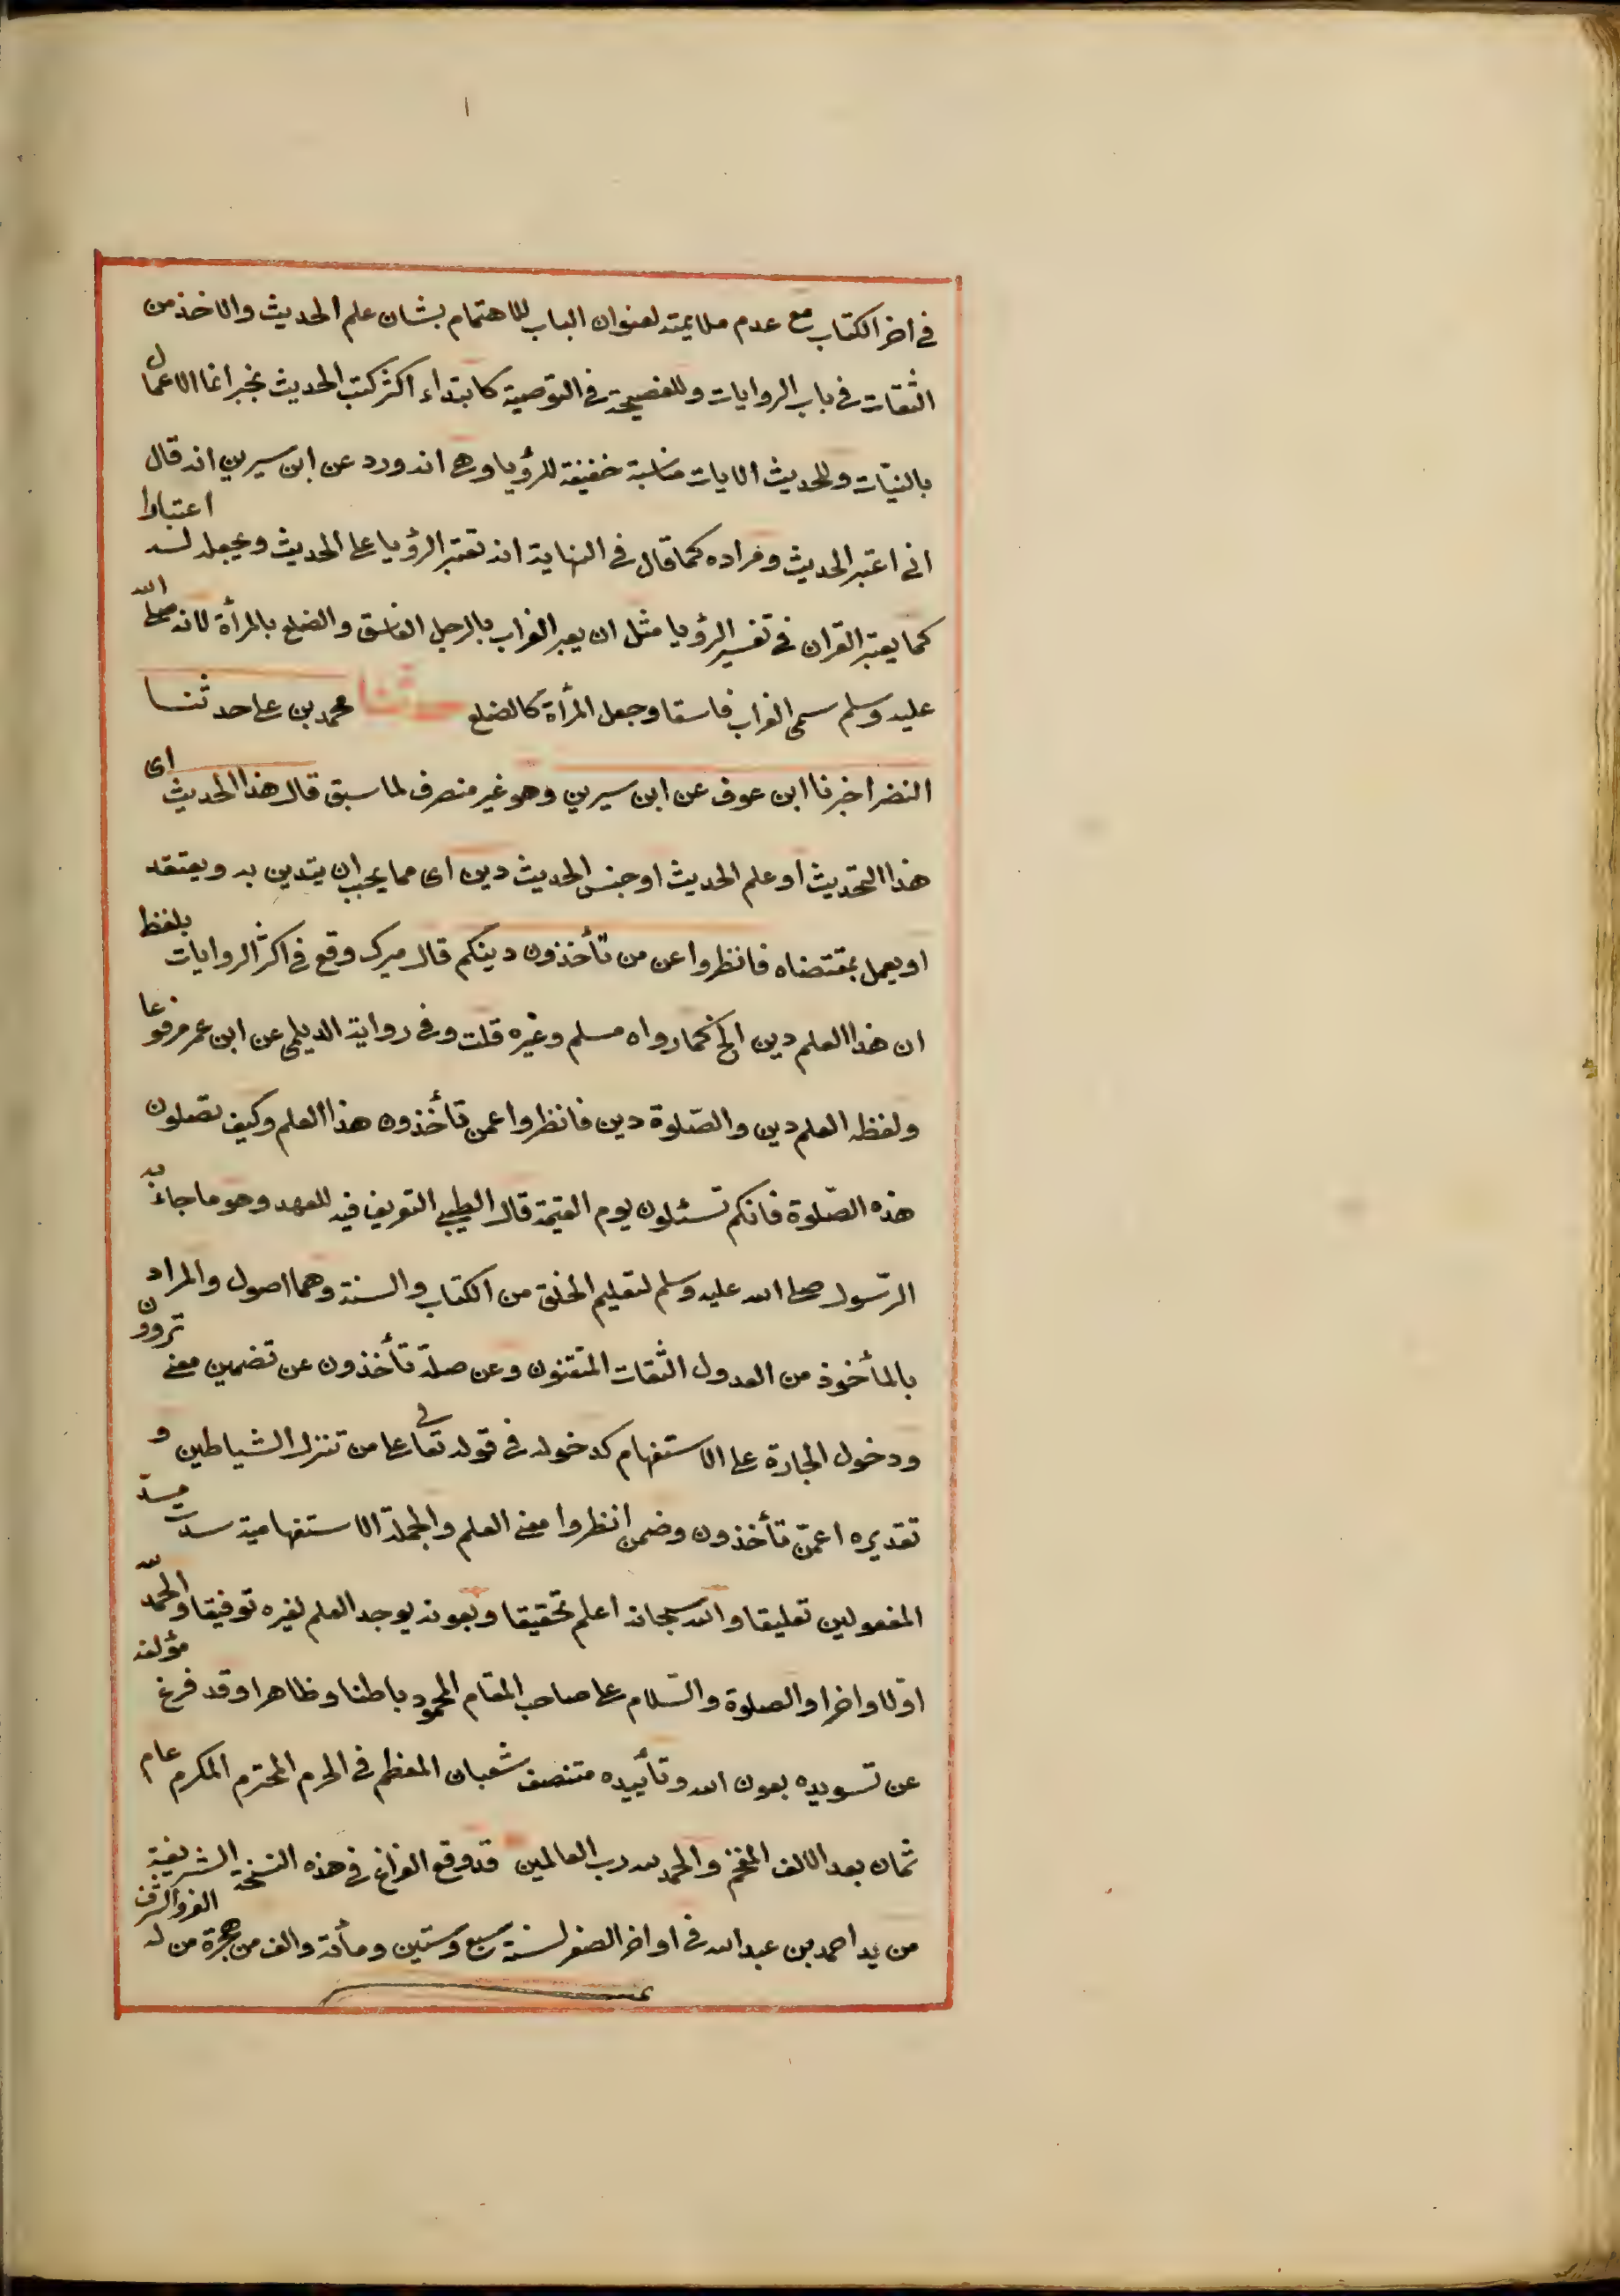 في اخر الكتاب مع عدم ملايمته لعنوان الباب للاهتمام بشان علم الحديث والاخذ من
الثقات في باب الروايات وللنصيحة في التوصية كابتداء اكثر كتب الحديث بخبر انما الاعمال
بالنيّات وللحديث الايات مناسبة خفيفة للرؤيا وهى انه ورد عن ابن سيرين انه قال
انى اعتبر الحديث ومراده كما قال في النهاية انه تعتبر الرؤيا على الحديث ويجعله له اعتبارا
كما يعتبر القران في تفسير الرؤيا مثل ان يعبر الغراب بالرجل الفاسق والضلع بالمرأة لانه صلى الله
عليه وسلم سمى الغراب فاسقا وجعل المرأة كالضلع حدثنا محمد بن على حدثنا
النضر اخبرنا ابن عوف عن ابن سيرين وهو غير منصرف لما سبق قال هذا الحديث اى
هذا التحديث او علم الحديث او جنس الحديث دين اى مما يجب ان يتدين به ويعتقد
او يعمل بمقتضاه فانظروا عن من تأخذون دينكم قال ميرك وقع في اكثر الروايات بلفظ
ان هذا العلم دين الخ كما رواه مسلم وغيره قلت وفى رواية الديلمى عن ابن عمر مرفوعا
ولفظه العلم دين والصّلوة دين فانظروا عمن تأخذون هذا العلم وكيف تصلون
هذه الصّلوة فانكم تسئلون يوم القيمة قال الطيبى التعريف فيه للعهد وهو ما جاء به
الرّسول صلى الله عليه وسلم لتعليم الخلق من الكتاب والسنة وهما اصول والمراد
بالمأخوذ من العدول الثقات المتقنون وعن صلة تأخذون عن تضمين معنى تروون
ودخول الجارة على الاستفهام كدخوله في قوله تعالى على من تنزل الشياطين و
تقديره اعمّن تأخذون وضمن انظروا معنى العلم والجملة الاستفهامية سدت مسدّ
المفعولين تعليقا والله سبحانه اعلم تحقيقا وبعونه يوجد العلم لغيره توفيقا والحمد لله
اوّلا واخرا والصلوة والسّلام على صاحب المقام المحمود باطنا وظاهرا وقد فرغ مؤلفه
عن تسويده بعون الله وتأييده منتصف شعبان المعظم في الحرم المحترم المكرم عام
ثمان بعد الالف المفخم والحمد لله رب العالمين قد وقع الفراغ في هذه النسخة الشريفة
من يد احمد بن عبد الله في اواخر الصفر لسنة سبع وستين ومأة والف من هجرة من له العز والشرف